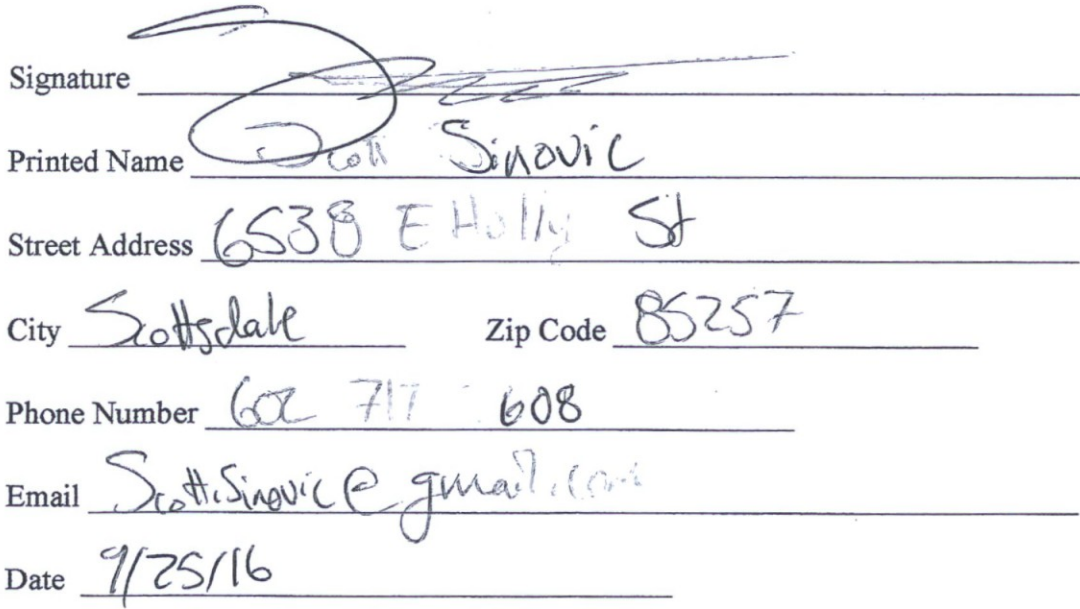 Signature
Printed Name Scott Sinovic
Street Address 6538 E Holly St
City Scottsdale Zip Code 85257
Phone Number 602 717 608
Email Scott.Sinovic@gmail.com
Date 9/25/16